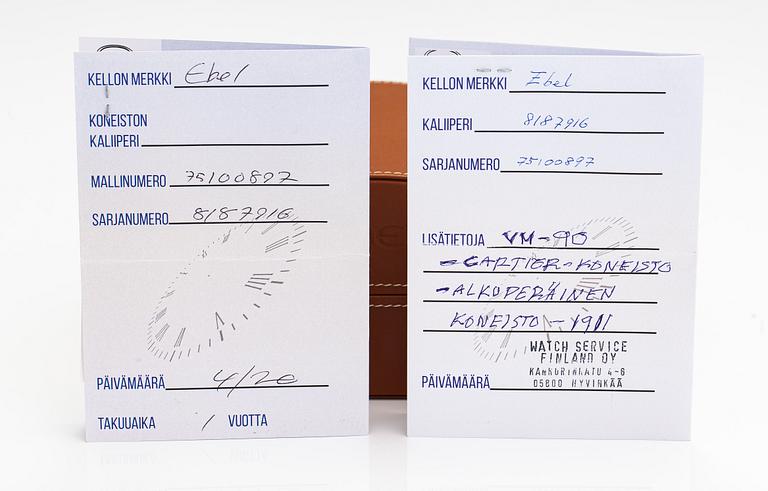 KELLON MERKKI Ebel
KONEISTON
KALIIPERI
MALLINUMERO 75100897
SARJANUMERO 8187916
PÄIVÄMÄÄRÄ 4/20
TAKUUAIKA / VUOTTA
KELLON MERKKI Ebel
KALIIPERI 8187916
SARJANUMERO 75100897
LISÄTIETOJA VM-90
-CARTIER-KONEISTO
-ALKUPERÄINEN
KONEISTO-1911
WATCH SERVICE
FINLAND OY
4-6
05800 HYVINKÄÄ
PÄIVÄMÄÄRÄ